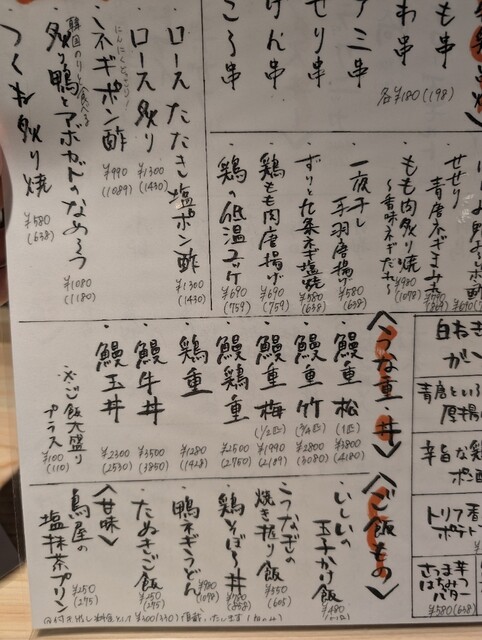 も串
わ串
アミ串
せり串
けん串
ころ串
各¥180(198)
せせり
青唐ネギまみれ
もも肉炙り焼
〜香味ネギだれ〜
¥980
(1078)
一夜干し
手羽唐揚げ
¥580
(638)
ずりと九条ネギ塩焼
¥580
(638)
鶏もも肉唐揚げ
¥690
(759)
鶏の低温ユッケ
¥690
(759)
・ロースたたき塩ポン酢
¥1300
(1430)
・ロース炙り
¥1300
(1430)
にんにくどっさり!
・ネギポン酢
¥990
(1089)
韓国のりと食べる
炙り鴨とアボガドのなめろう
¥1080
(1180)
つくね炙り焼
¥580
(638)
<うな重・丼>
・鰻重 松
(1匹)
¥3800
(4180)
・鰻重 竹
(3/4匹)
¥2800
(3080)
・鰻重 梅
(1/2匹)
¥1990
(2189)
・鰻鶏重
¥2500
(2750)
・鶏重
¥1280
(1428)
・鰻牛丼
¥3500
(3850)
・鰻玉丼
¥2300
(2530)
※ご飯大盛り
プラス¥100
(110)
<ご飯もの>
・いしいの
玉子かけ飯
¥480
・うなぎの
焼き握り飯
¥550
(605)
鶏そぼろ丼
¥780
(858)
鴨ネギうどん
¥980
(1078)
たぬきご飯
¥250
(275)
<甘味>
鳥屋の
塩抹茶プリン
¥250
(275)
白ねぎ
青唐という
厚揚げ
辛旨な鶏
ポン酢
トリュフ香
ポテト
さつま芋
はちみつ
バター
¥580(638)